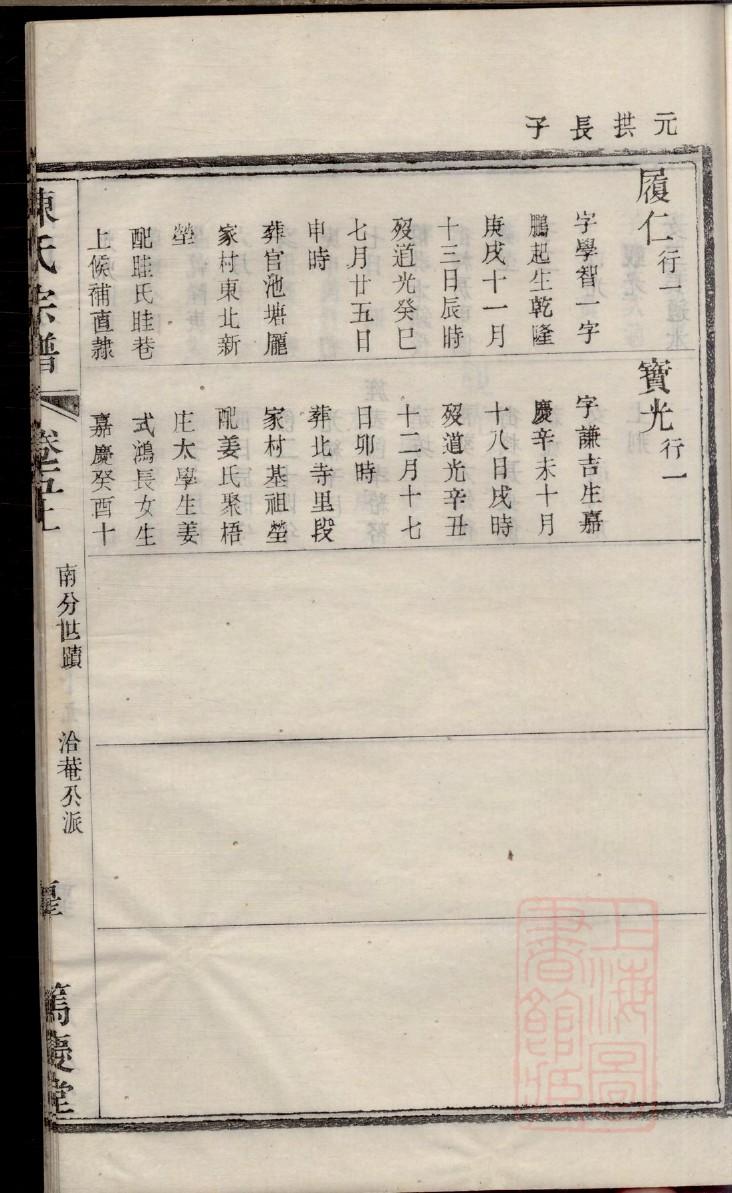 元拱長子
履仁行一
字學智一字
鵬起生乾隆
庚戌十一月
十三日辰時
歿道光癸巳
七月廿五日
申時
葬官池塘龎
家村東北新
塋
配眭氏眭巷
上候補直隸
寶光行一
字謙吉生嘉
慶辛未十月
十八日戌時
歿道光辛丑
十二月十七
日卯時
葬北寺里段
家村基祖塋
配姜氏聚梧
庄太學生姜
式鴻長女生
嘉慶癸酉十
陳氏宗譜
南分世蹟
洽菴公派
篤慶堂
上海圖
書館藏